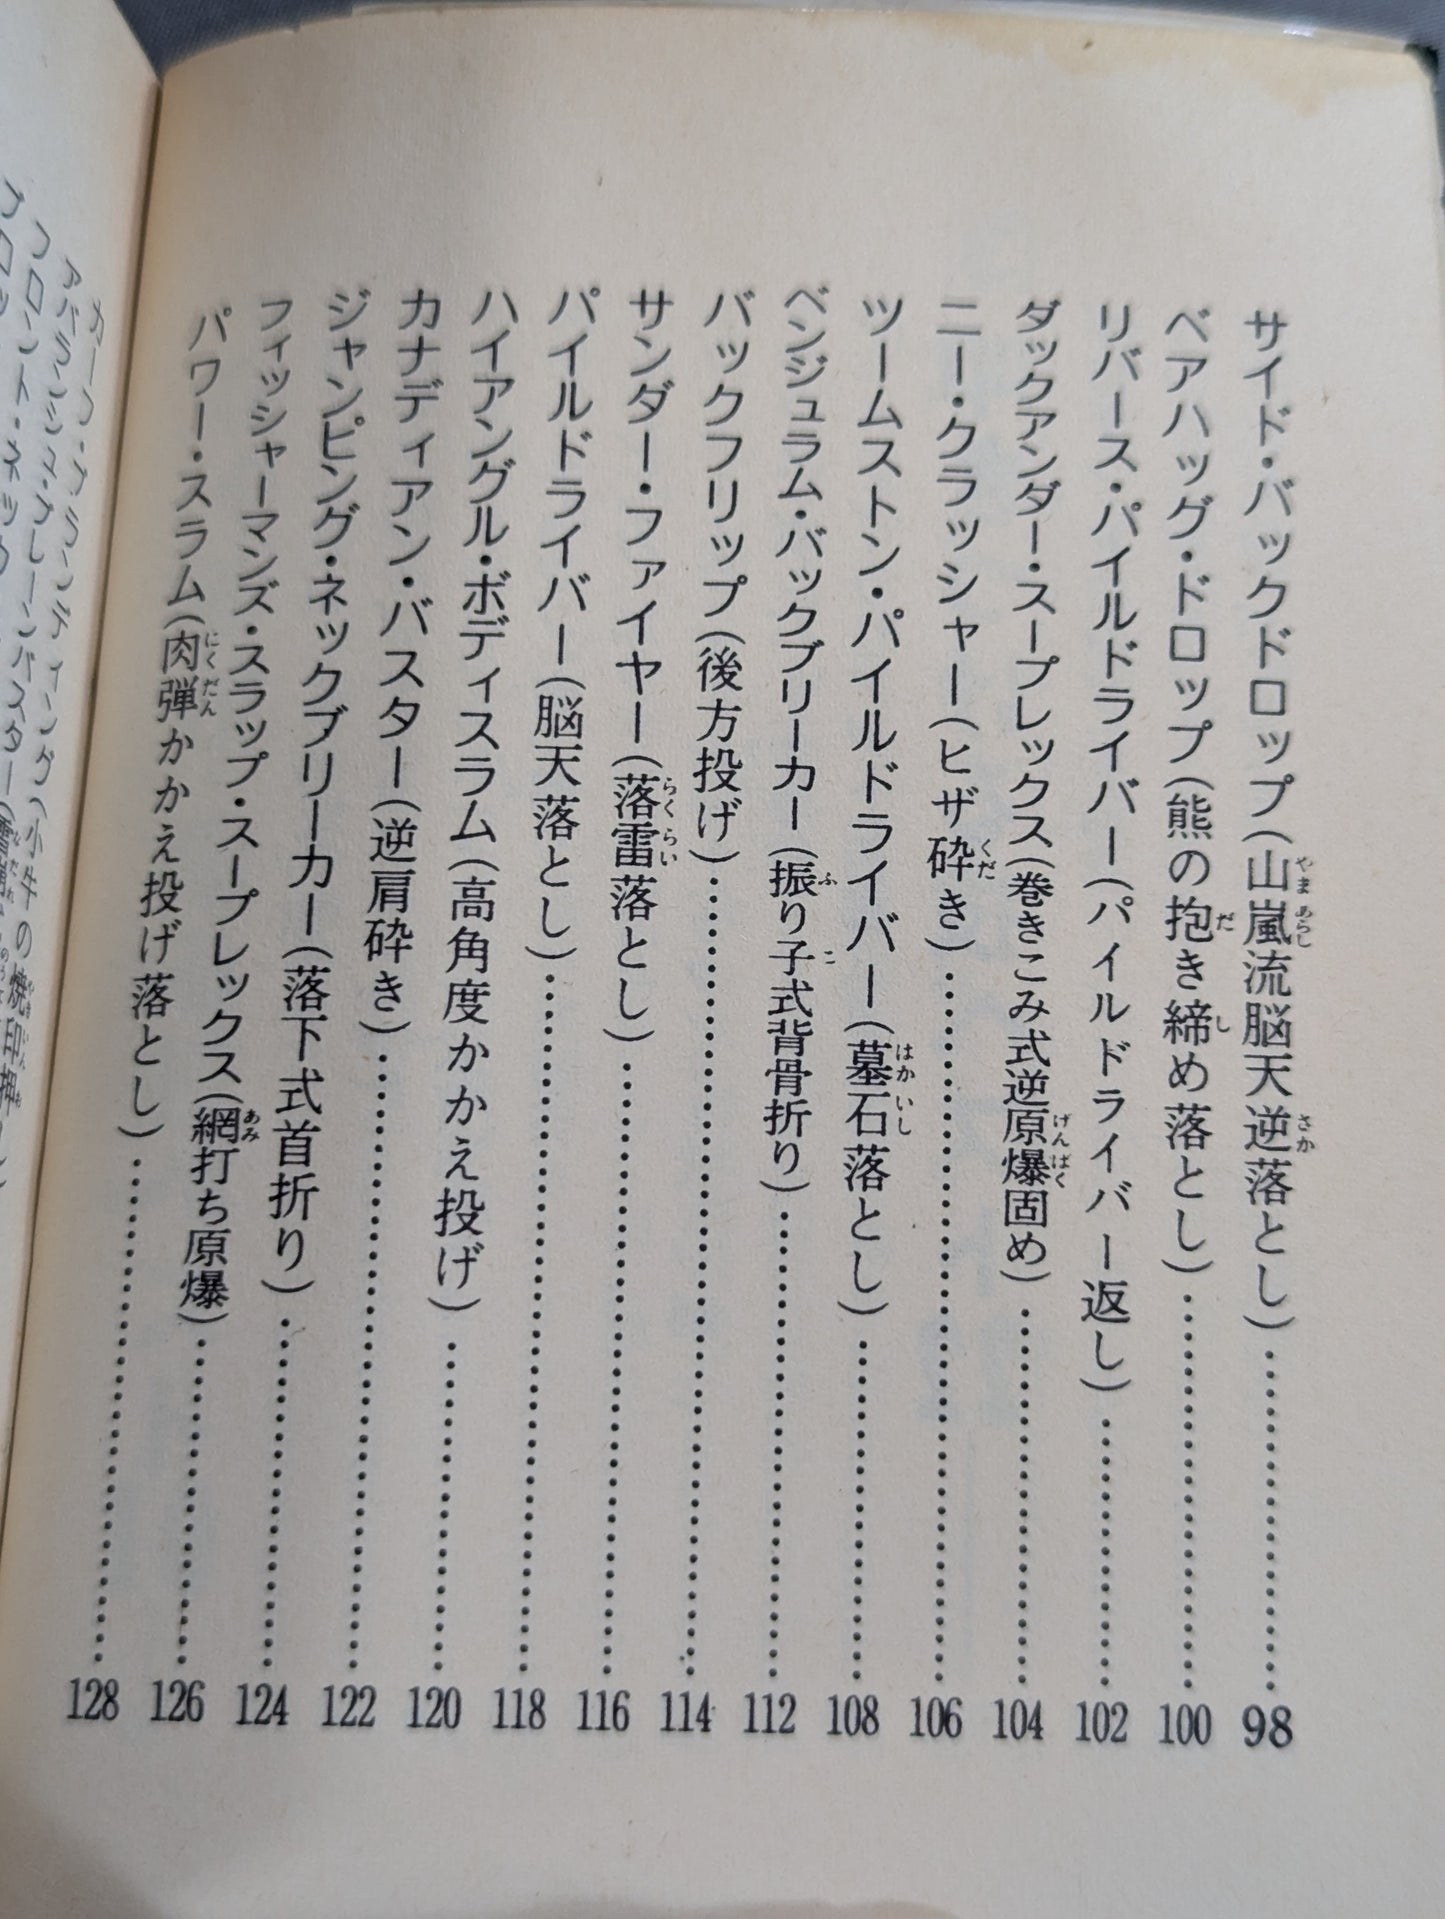 サイド・バックドロップ(山嵐流脳天逆落とし)……98
ベアハッグ・ドロップ(熊の抱き締め落とし)……100
リバース・パイルドライバー(パイルドライバー返し)……102
ダックアンダー・スープレックス(巻きこみ式逆原爆固め)……104
ニー・クラッシャー(ヒザ砕き)……106
ツームストン・パイルドライバー(墓石落とし)……108
ベンジュラム・バックブリーカー(振り子式背骨折り)……112
バックフリップ(後方投げ)……114
サンダー・ファイヤー(落雷落とし)……116
パイルドライバー(脳天落とし)……118
ハイアングル・ボディスラム(高角度かかえ投げ)……120
カナディアン・バスター(逆肩砕き)……122
ジャンピング・ネックブリーカー(落下式首折り)……124
フィッシャーマンズ・スラップ・スープレックス(網打ち原爆)……126
パワー・スラム(肉弾かかえ投げ落とし)……128